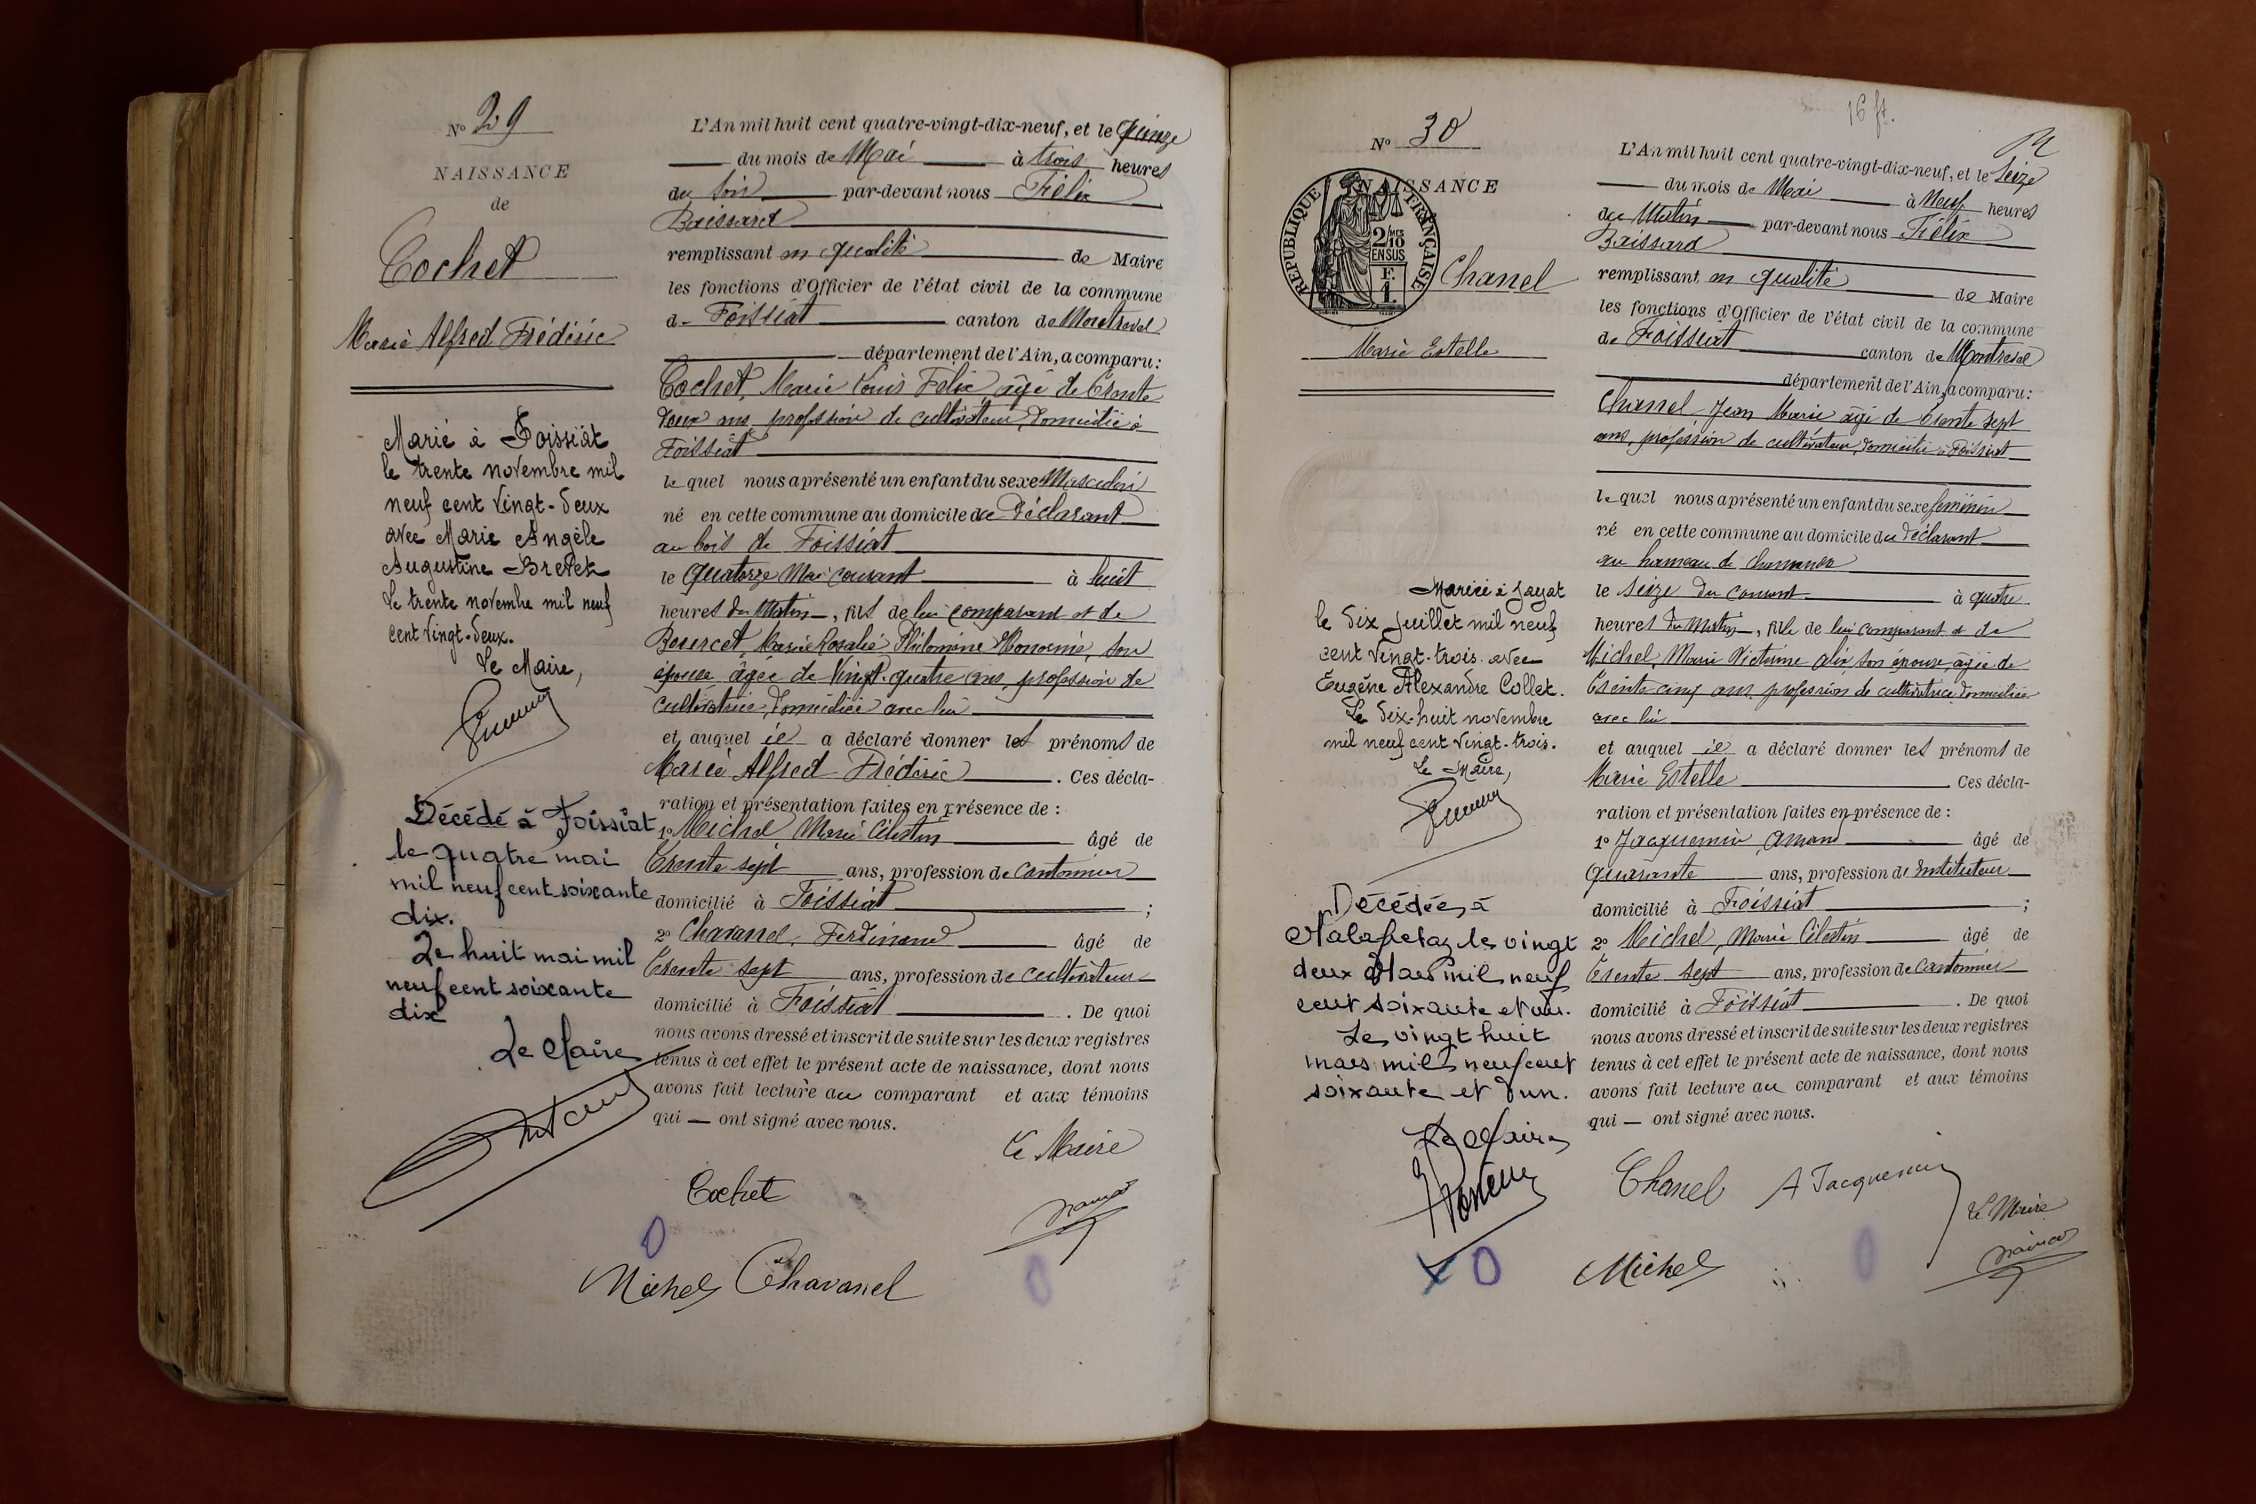 N° 29
NAISSANCE
de
Cochet
Marie Alfred Frédéric
Marié à Foissiat
le trente novembre mil
neuf cent vingt-deux
avec Marie Angèle
Augustine Brevet
Le trente novembre mil neuf
cent vingt-deux.
Le Maire,
Décédé à Foissiat
le quatre mai
mil neuf cent soixante
dix.
Le huit mai mil
neuf cent soixante
dix
Le Maire
L'An mil huit cent quatre-vingt-dix-neuf, et le quinze
du mois de Mai à trois heures
du soir par-devant nous Félix
Boissard
remplissant en qualité de Maire
les fonctions d'Officier de l'état civil de la commune
de Foissiat canton de Montrevel
département de l'Ain, a comparu :
Cochet, Marie Louis Félix âgé de trente
deux ans, profession de cultivateur, domicilié à
Foissiat
lequel nous a présenté un enfant du sexe Masculin
né en cette commune au domicile du déclarant
au bois de Foissiat
le quatorze Mai courant à huit
heures du Matin, fils de lui comparant et de
Marie Rosalie Philomène son
épouse âgée de Vingt-quatre ans, profession de
cultivatrice, domiciliée avec lui
et auquel il a déclaré donner les prénoms de
Marie Alfred Frédéric. Ces décla-
ration et présentation faites en présence de :
1° Michel Marie Célestin âgé de
trente sept ans, profession de cantonnier
domicilié à Foissiat ;
2° Chavanel, Ferdinand âgé de
trente sept ans, profession de cultivateur
domicilié à Foissiat. De quoi
nous avons dressé et inscrit de suite sur les deux registres
tenus à cet effet le présent acte de naissance, dont nous
avons fait lecture au comparant et aux témoins
qui — ont signé avec nous.
Le Maire
Cochet
Michel Chavanel
16 ft.
N° 30
NAISSANCE
RÉPUBLIQUE FRANÇAISE
2/10 MES
EN SUS
F.
1.
Chanel
Marie Estelle
Mariée à Jayat
le dix Juillet mil neuf
cent vingt-trois avec
Eugène Alexandre Collet.
Le dix-huit novembre
mil neuf cent vingt-trois.
Le Maire,
Décédée à
Malafretaz le vingt
deux Mars mil neuf
cent soixante et un.
Le vingt huit
mars mil neuf cent
soixante et dun.
Le Maire
L'An mil huit cent quatre-vingt-dix-neuf, et le Seize
du mois de Mai à Neuf heures
du Matin par-devant nous Félix
Boissard
remplissant en qualité de Maire
les fonctions d'Officier de l'état civil de la commune
de Foissiat canton de Montrevel
département de l'Ain, a comparu :
Chanel Jean Marie âgé de trente sept
ans, profession de cultivateur, domicilié à Foissiat
lequel nous a présenté un enfant du sexe féminin
né en cette commune au domicile du déclarant
au hameau de
le seize du courant à quatre
heures du Matin, fille de lui comparant et de
Michel, Marie Victorine son épouse, âgée de
trente cinq ans, profession de cultivatrice domiciliée
avec lui
et auquel il a déclaré donner les prénoms de
Marie Estelle Ces décla-
ration et présentation faites en présence de :
1° Jacquemin, Amand âgé de
quarante ans, profession d'Instituteur
domicilié à Foissiat ;
2° Michel, Marie Célestin âgé de
trente sept ans, profession de cantonnier
domicilié à Foissiat. De quoi
nous avons dressé et inscrit de suite sur les deux registres
tenus à cet effet le présent acte de naissance, dont nous
avons fait lecture au comparant et aux témoins
qui — ont signé avec nous.
Chanel A Jacquemin
Le Maire
Michel